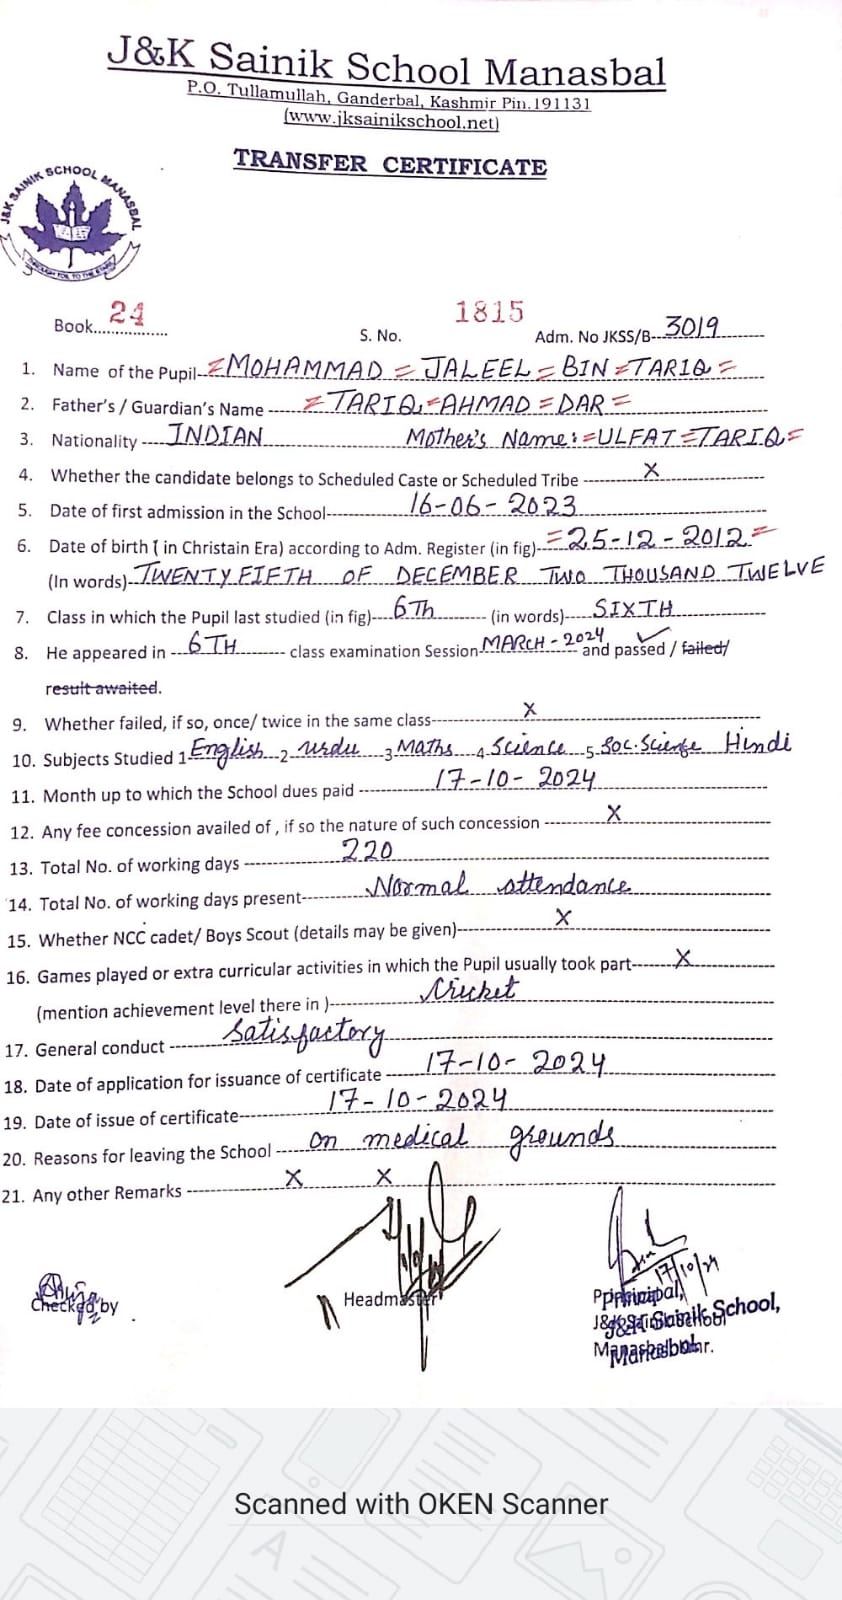 J&K Sainik School Manasbal
P.O. Tullamullah, Ganderbal, Kashmir Pin.191131
(www.jksainikschool.net)
TRANSFER CERTIFICATE
J&K SAINIK SCHOOL MANASBAL
Book 24 S. No. 1815 Adm. No JKSS/B- 3019
1. Name of the Pupil = MOHAMMAD = JALEEL = BIN = TARIQ =
2. Father's / Guardian's Name = TARIQ = AHMAD = DAR =
3. Nationality INDIAN Mother's Name: = ULFAT = TARIQ =
4. Whether the candidate belongs to Scheduled Caste or Scheduled Tribe X
5. Date of first admission in the School 16-06-2023
6. Date of birth ( in Christain Era) according to Adm. Register (in fig) = 25-12-2012 =
(In words) TWENTY FIFTH OF DECEMBER TWO THOUSAND TWELVE
7. Class in which the Pupil last studied (in fig) 6Th (in words) SIXTH
8. He appeared in 6TH class examination Session MARCH-2024 and passed / failed/
result awaited.
9. Whether failed, if so, once/ twice in the same class X
10. Subjects Studied 1 English 2 Urdu 3 Maths 4 Science 5 Soc. Science Hindi
11. Month up to which the School dues paid 17-10-2024
12. Any fee concession availed of , if so the nature of such concession X
13. Total No. of working days 220
14. Total No. of working days present Normal attendance
15. Whether NCC cadet/ Boys Scout (details may be given) X
16. Games played or extra curricular activities in which the Pupil usually took part X
(mention achievement level there in ) Cricket
17. General conduct Satisfactory
18. Date of application for issuance of certificate 17-10-2024
19. Date of issue of certificate 17-10-2024
20. Reasons for leaving the School on medical grounds
21. Any other Remarks X X
17/10/24
Checked by Headmaster Principal,
J&K Sainik School,
Manasbal
Scanned with OKEN Scanner